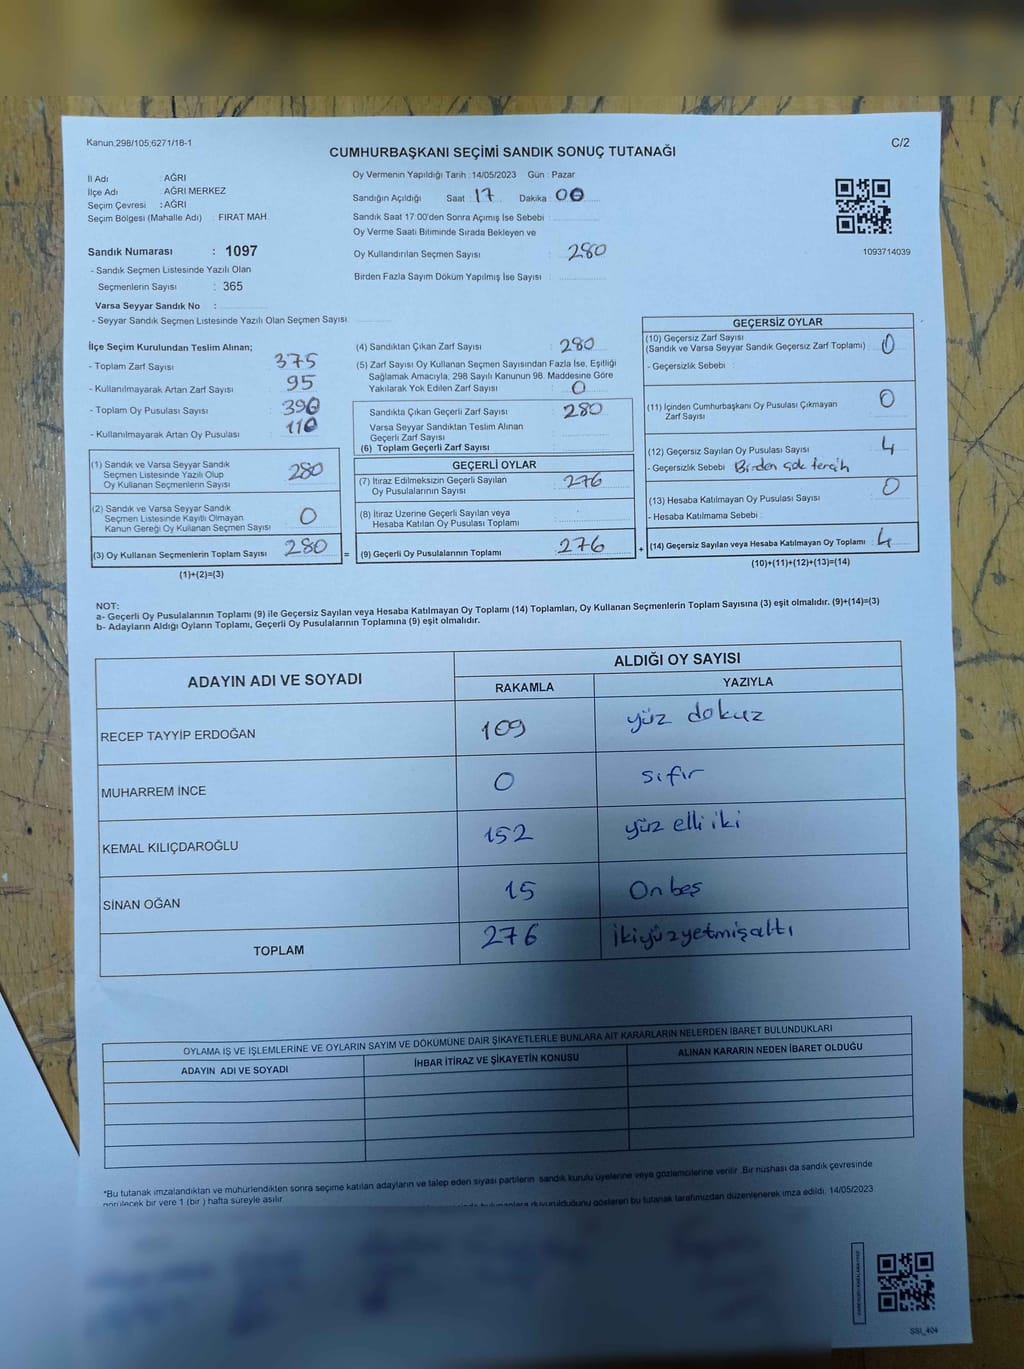 Kanun.298/105;6271/18-1
C/2
CUMHURBAŞKANI SEÇİMİ SANDIK SONUÇ TUTANAĞI
İl Adı : AĞRI
İlçe Adı : AĞRI MERKEZ
Seçim Çevresi : AĞRI
Seçim Bölgesi (Mahalle Adı) : FIRAT MAH.
Sandık Numarası : 1097
- Sandık Seçmen Listesinde Yazılı Olan
Seçmenlerin Sayısı : 365
Varsa Seyyar Sandık No :
- Seyyar Sandık Seçmen Listesinde Yazılı Olan Seçmen Sayısı
Oy Vermenin Yapıldığı Tarih : 14/05/2023 Gün : Pazar
Sandığın Açıldığı Saat : 17 Dakika : 00
Sandık Saat 17:00'den Sonra Açımış İse Sebebi :
Oy Verme Saati Bitiminde Sırada Bekleyen ve
Oy Kullandırılan Seçmen Sayısı : 280
Birden Fazla Sayım Döküm Yapılmış İse Sayısı :
1093714039
İlçe Seçim Kurulundan Teslim Alınan;
- Toplam Zarf Sayısı : 375
- Kullanılmayarak Artan Zarf Sayısı : 95
- Toplam Oy Pusulası Sayısı : 390
- Kullanılmayarak Artan Oy Pusulası : 110
(1) Sandık ve Varsa Seyyar Sandık
Seçmen Listesinde Yazılı Olup
Oy Kullanan Seçmenlerin Sayısı : 280
(2) Sandık ve Varsa Seyyar Sandık
Seçmen Listesinde Kayıtlı Olmayan
Kanun Gereği Oy Kullanan Seçmen Sayısı : 0
(3) Oy Kullanan Seçmenlerin Toplam Sayısı : 280
(1)+(2)=(3)
(4) Sandıktan Çıkan Zarf Sayısı : 280
(5) Zarf Sayısı Oy Kullanan Seçmen Sayısından Fazla İse, Eşitliği
Sağlamak Amacıyla, 298 Sayılı Kanunun 98. Maddesine Göre
Yakılarak Yok Edilen Zarf Sayısı : 0
Sandıkta Çıkan Geçerli Zarf Sayısı : 280
Varsa Seyyar Sandıktan Teslim Alınan
Geçerli Zarf Sayısı :
(6) Toplam Geçerli Zarf Sayısı
GEÇERLİ OYLAR
(7) İtiraz Edilmeksizin Geçerli Sayılan
Oy Pusulalarının Sayısı : 276
(8) İtiraz Üzerine Geçerli Sayılan veya
Hesaba Katılan Oy Pusulası Toplamı :
= (9) Geçerli Oy Pusulalarının Toplamı : 276
GEÇERSİZ OYLAR
(10) Geçersiz Zarf Sayısı
(Sandık ve Varsa Seyyar Sandık Geçersiz Zarf Toplamı) : 0
- Geçersizlik Sebebi :
(11) İçinden Cumhurbaşkanı Oy Pusulası Çıkmayan
Zarf Sayısı : 0
(12) Geçersiz Sayılan Oy Pusulası Sayısı : 4
- Geçersizlik Sebebi : Birden çok tercih
(13) Hesaba Katılmayan Oy Pusulası Sayısı : 0
- Hesaba Katılmama Sebebi :
+ (14) Geçersiz Sayılan veya Hesaba Katılmayan Oy Toplamı : 4
(10)+(11)+(12)+(13)=(14)
NOT:
a- Geçerli Oy Pusulalarının Toplamı (9) ile Geçersiz Sayılan veya Hesaba Katılmayan Oy Toplamı (14) Toplamları, Oy Kullanan Seçmenlerin Toplam Sayısına (3) eşit olmalıdır. (9)+(14)=(3)
b- Adayların Aldığı Oyların Toplamı, Geçerli Oy Pusulalarının Toplamına (9) eşit olmalıdır.
ADAYIN ADI VE SOYADI ALDIĞI OY SAYISI
RAKAMLA YAZIYLA
RECEP TAYYİP ERDOĞAN 109 yüz dokuz
MUHARREM İNCE 0 sıfır
KEMAL KILIÇDAROĞLU 152 yüz elli iki
SİNAN OĞAN 15 On beş
TOPLAM 276 İkiyüzyetmişaltı
OYLAMA İŞ VE İŞLEMLERİNE VE OYLARIN SAYIM VE DÖKÜMÜNE DAİR ŞİKAYETLERLE BUNLARA AİT KARARLARIN NELERDEN İBARET BULUNDUKLARI
ADAYIN ADI VE SOYADI İHBAR İTİRAZ VE ŞİKAYETİN KONUSU ALINAN KARARIN NEDEN İBARET OLDUĞU
*Bu tutanak imzalandıktan ve mühürlendikten sonra seçime katılan adayların ve talep eden siyasi partilerin sandık kurulu üyelerine veya gözlemcilerine verilir .Bir nüshası da sandık çevresinde
görülecek bir yere 1 (bir ) hafta süreyle asılır.
bulunanlara duyurulduğunu gösteren bu tutanak tarafımızdan düzenlenerek imza edildi. 14/05/2023
SSI_404